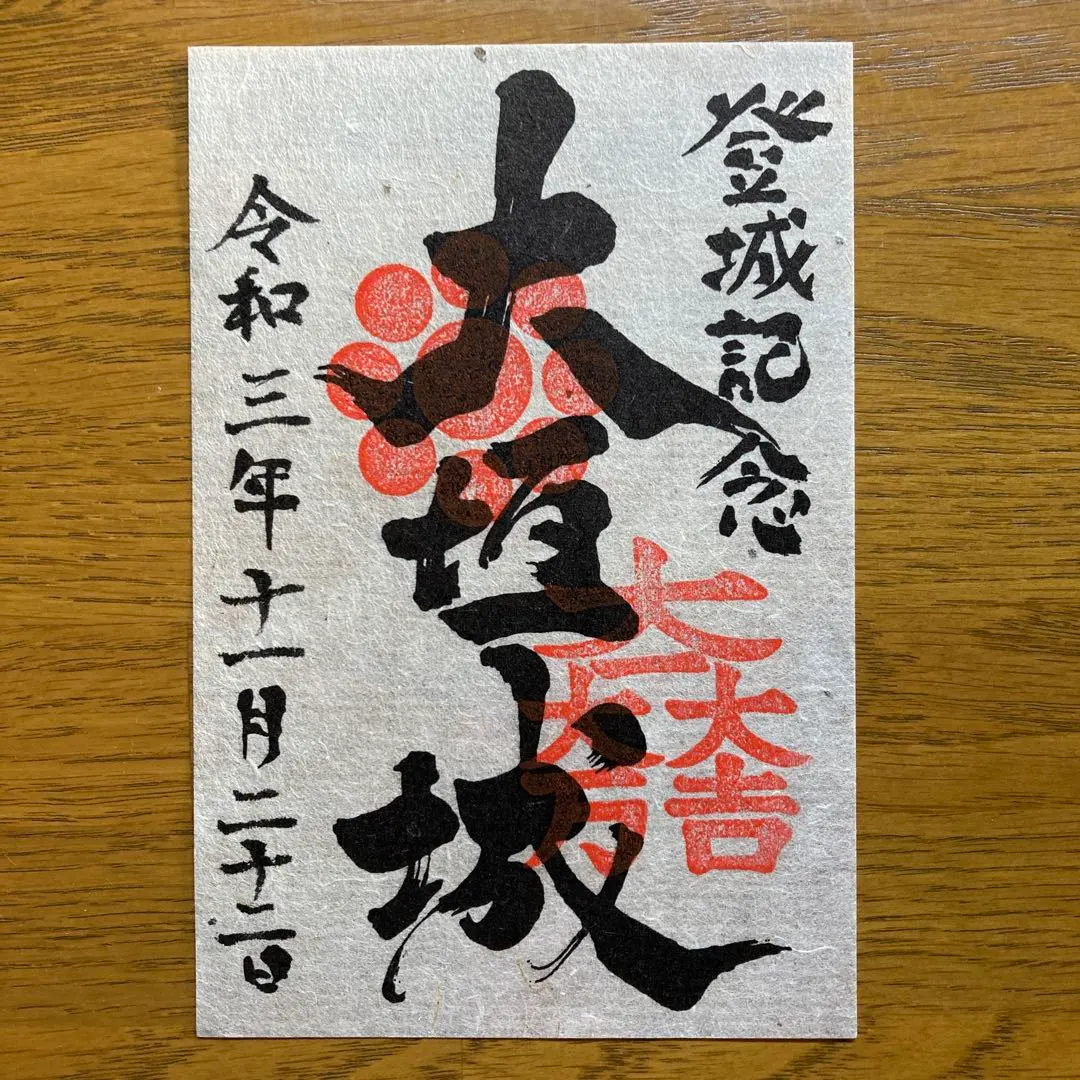 登城記念
大垣城
大一大万大吉
令和三年十一月二十二日